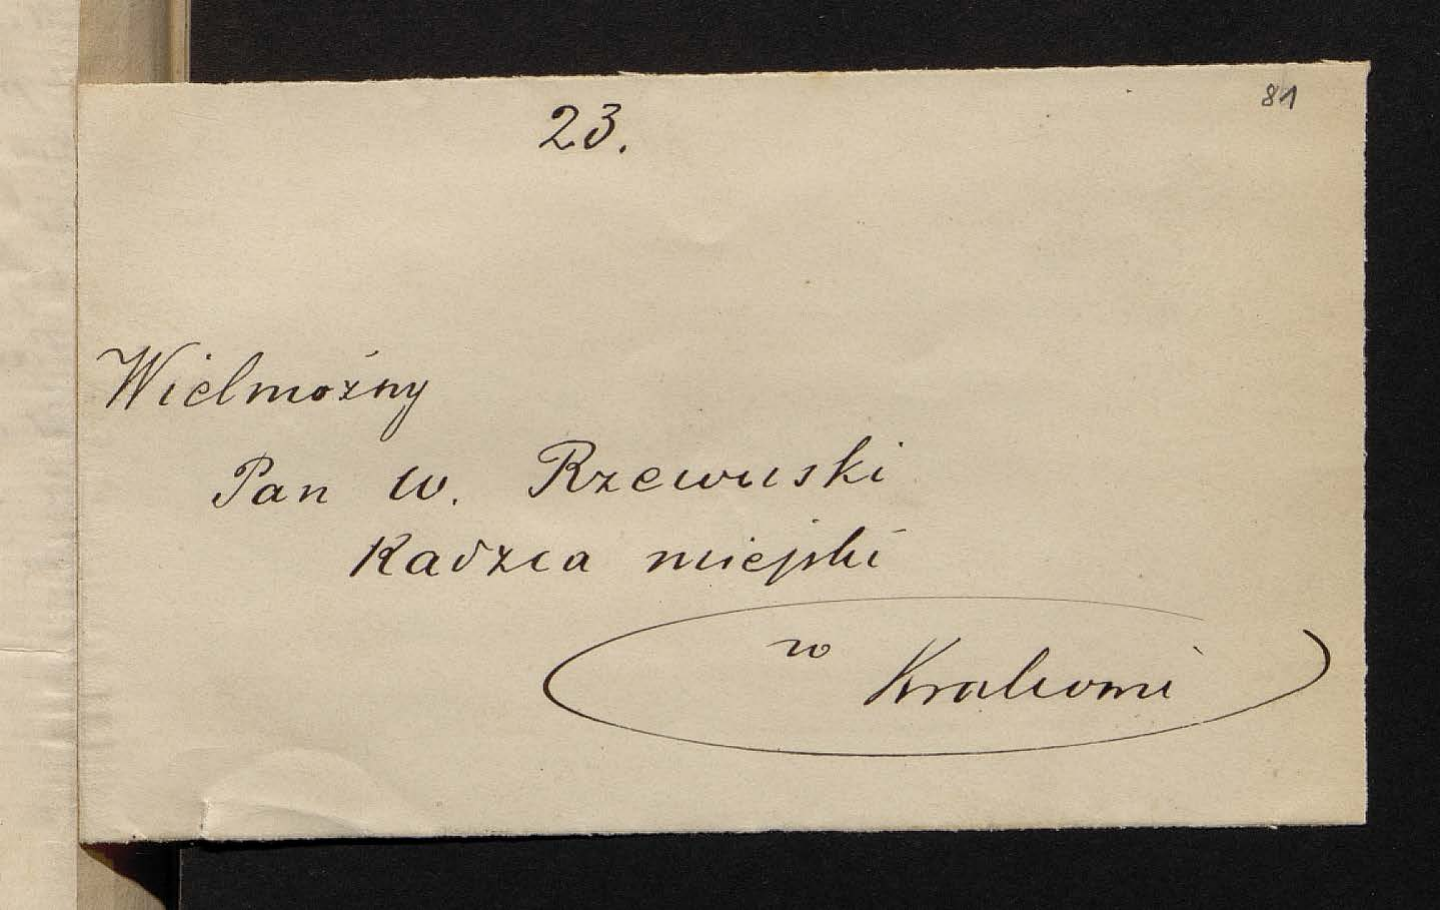 81
23.
Wielmożny
Pan W. Rzewuski
Radzca miejski
w Krakowie